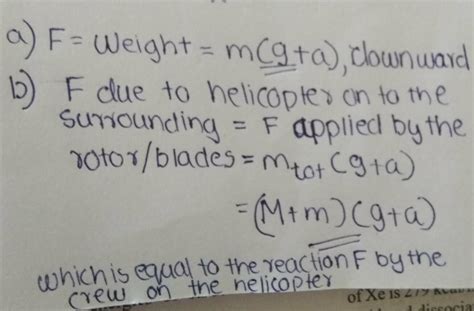 a) F = Weight = m(g+a), downward
b) F due to helicopter on to the
surrounding = F applied by the
rotor/blades = mtot (g+a)
= (M+m)(g+a)
which is equal to the reaction F by the
crew on the helicopter
of Xe is